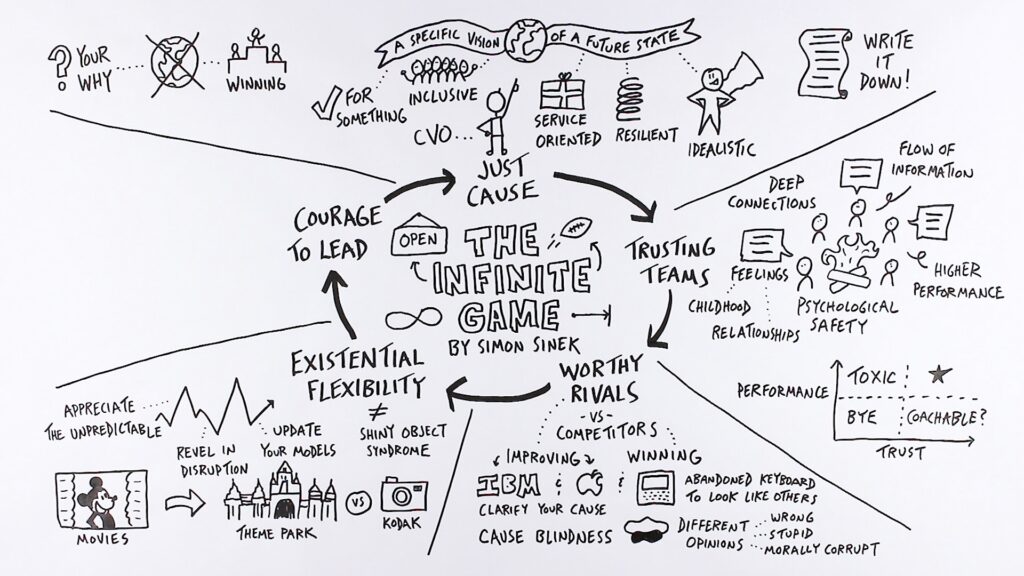 ?
YOUR
WHY
WINNING
A SPECIFIC VISION OF A FUTURE STATE
FOR
SOMETHING
INCLUSIVE
CVO...
SERVICE
ORIENTED
RESILIENT
IDEALISTIC
WRITE
IT
DOWN!
JUST
CAUSE
COURAGE
TO LEAD
OPEN
THE
INFINITE
GAME
BY SIMON SINEK
TRUSTING
TEAMS
DEEP
CONNECTIONS
FLOW OF
INFORMATION
FEELINGS
CHILDHOOD
RELATIONSHIPS
PSYCHOLOGICAL
SAFETY
HIGHER
PERFORMANCE
PERFORMANCE
TOXIC
BYE
COACHABLE?
TRUST
WORTHY
RIVALS
-VS-
COMPETITORS
IMPROVING
WINNING
IBM & &
CLARIFY YOUR CAUSE
ABANDONED KEYBOARD
TO LOOK LIKE OTHERS
CAUSE BLINDNESS
DIFFERENT
OPINIONS
WRONG
STUPID
MORALLY CORRUPT
EXISTENTIAL
FLEXIBILITY
≠
SHINY OBJECT
SYNDROME
APPRECIATE
THE UNPREDICTABLE
REVEL IN
DISRUPTION
UPDATE
YOUR MODELS
MOVIES
THEME PARK
VS
KODAK